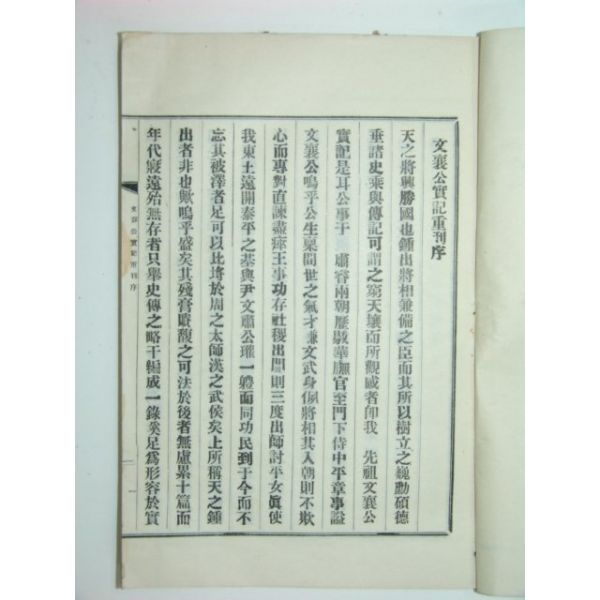 文襄公實記重刊序
天之將興勝國也鍾出將相兼備之臣而其所以樹立之巍勳碩德
垂諸史乘與傳記可謂之窮天壤而所觀感者卽我 先祖文襄公
實記是耳公事于 肅睿兩朝歷敭華膴官至門下侍中平章事諡
文襄公嗚乎公生稟間世之氣才兼文武身佩將相其入朝則不欺
心而專對直諫盡瘁王事功存社稷出閫則三度出師討平女眞使
我東土遠開泰平之基與尹文肅公瓘一軆而同功民到于今而不
忘其被澤者足可以比埓於周之太師漢之武侯矣上所稱天之鍾
出者非也歟嗚乎盛矣其殘膏賸馥之可法於後者無慮累十篇而
年代寢遠殆無存者只舉史傳之略干編成一錄奚足爲形容於實
文襄公實記重刊序